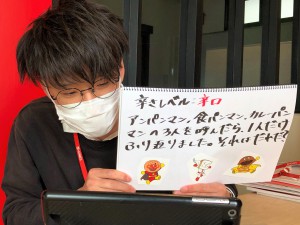 辛さレベル:辛口
アンパンマン、食パンマン、カレーパン
マンの3人を呼んだら、1人だけ
ふり返りました。それはだれ?